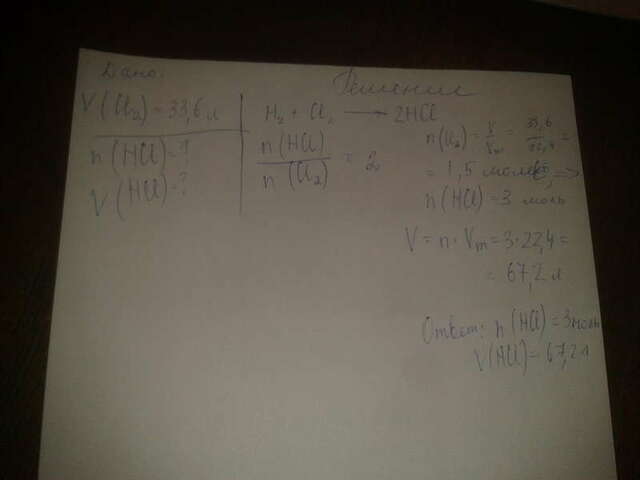 Дано:
V(Cl₂) = 33,6 л
n(HCl) = ?
V(HCl) = ?
Решение
H₂ + Cl₂ → 2HCl
n(HCl)
n(Cl₂)
= 2
n(Cl₂) = V/Vm = 33,6/22,4 =
= 1,5 моль =>
n(HCl) = 3 моль
V = n · Vm = 3·22,4 =
= 67,2 л
Ответ: n(HCl) = 3 моль
V(HCl) = 67,2 л